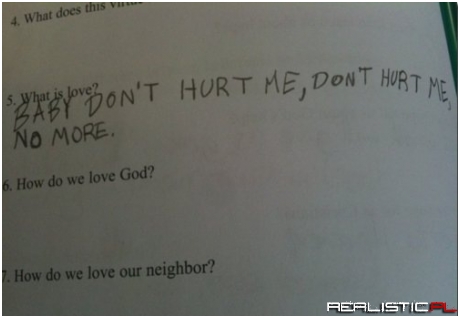 4. What does this
5. What is love?
BABY DON'T HURT ME, DON'T HURT ME,
NO MORE.
6. How do we love God?
7. How do we love our neighbor?
REALISTICPL